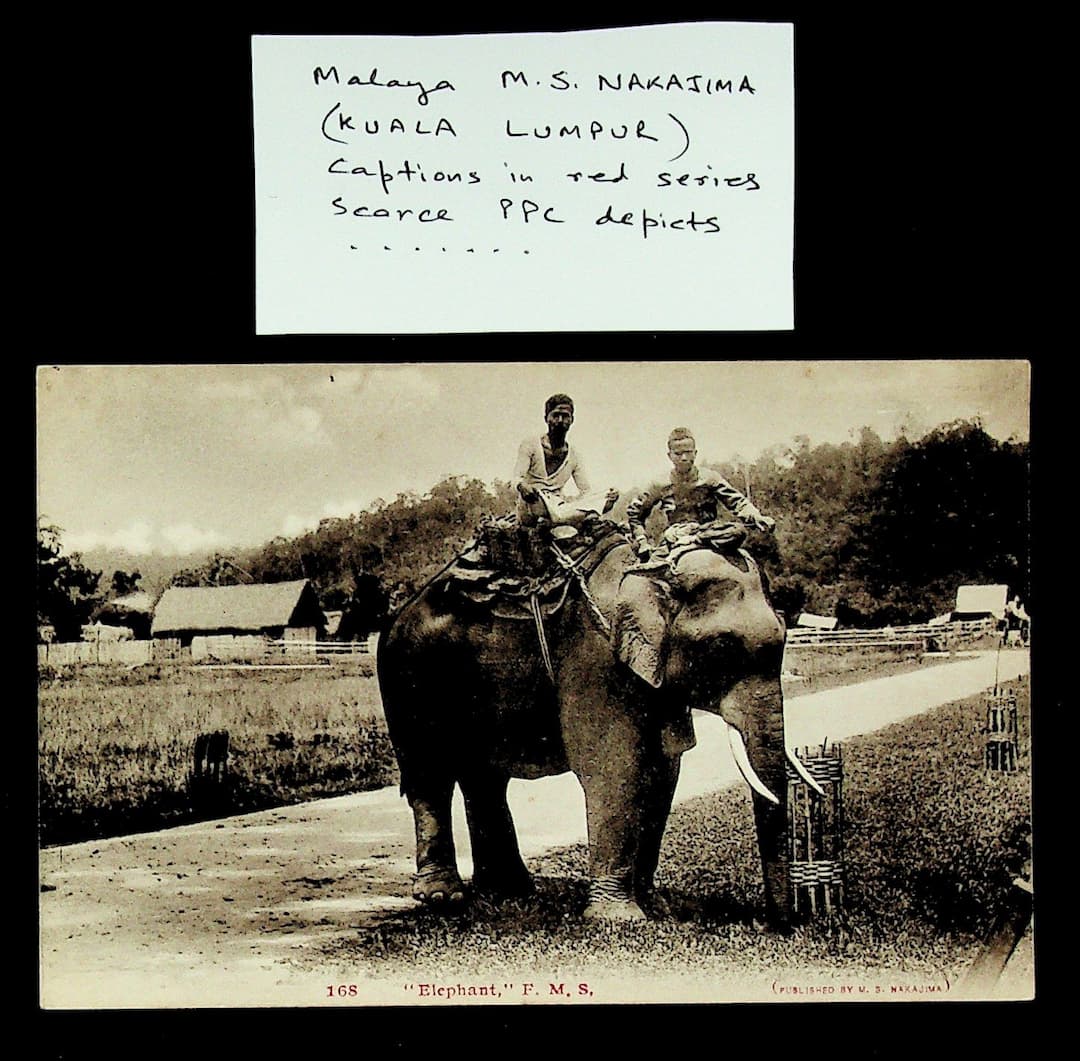 Malaya M.S. NAKAJIMA
(KUALA LUMPUR)
Captions in red series
Scarce PPC depicts
........
168 "Elephant," F. M. S,
(PUBLISHED BY M. S. NAKAJIMA)